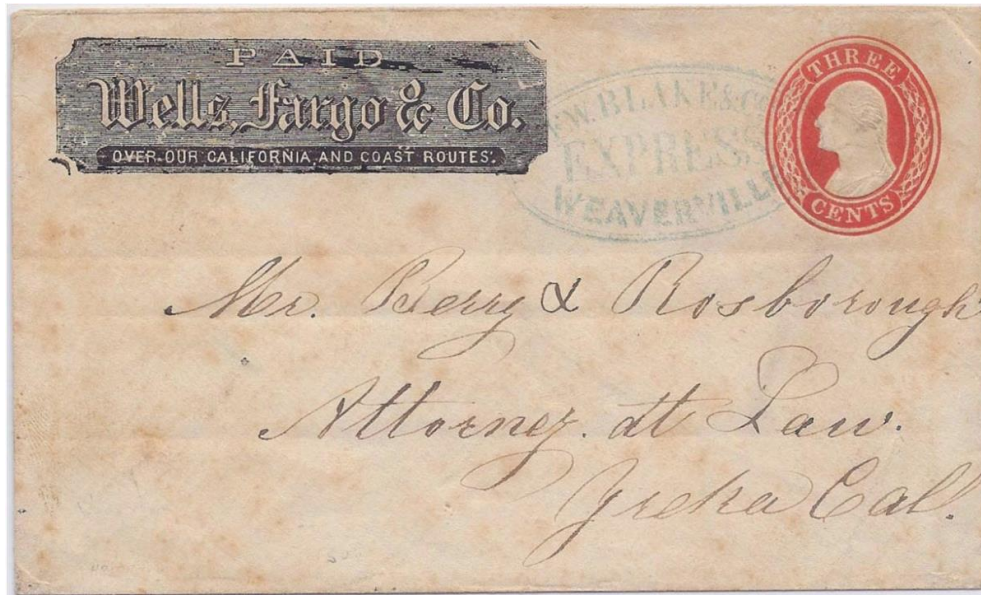 PAID
Wells, Fargo & Co.
OVER OUR CALIFORNIA AND COAST ROUTES.
F.W. BLAKE & CO
EXPRESS
WEAVERVILLE
THREE
CENTS
Mr. Berry & Rosborough
Attorney. at Law.
Yreka Cal.